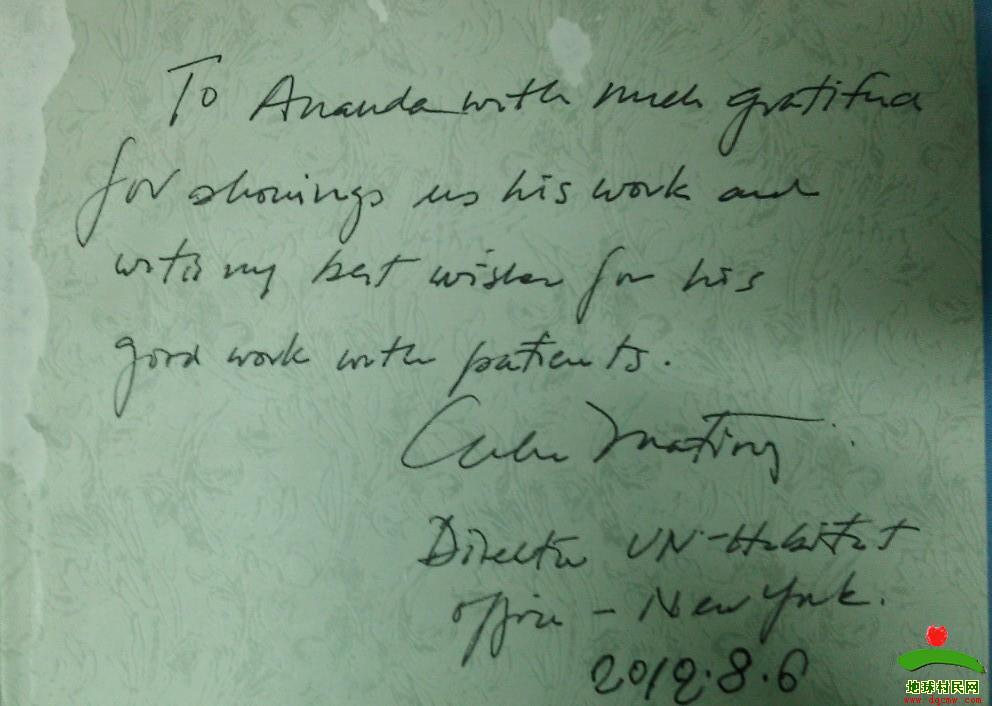 To Ananda with much gratitud
for showings us his work and
with my best wishes for his
good work with patients.
Director UN-Habitat
office - New York.
2012.8.6
地球村民网
www.dqcmw.com